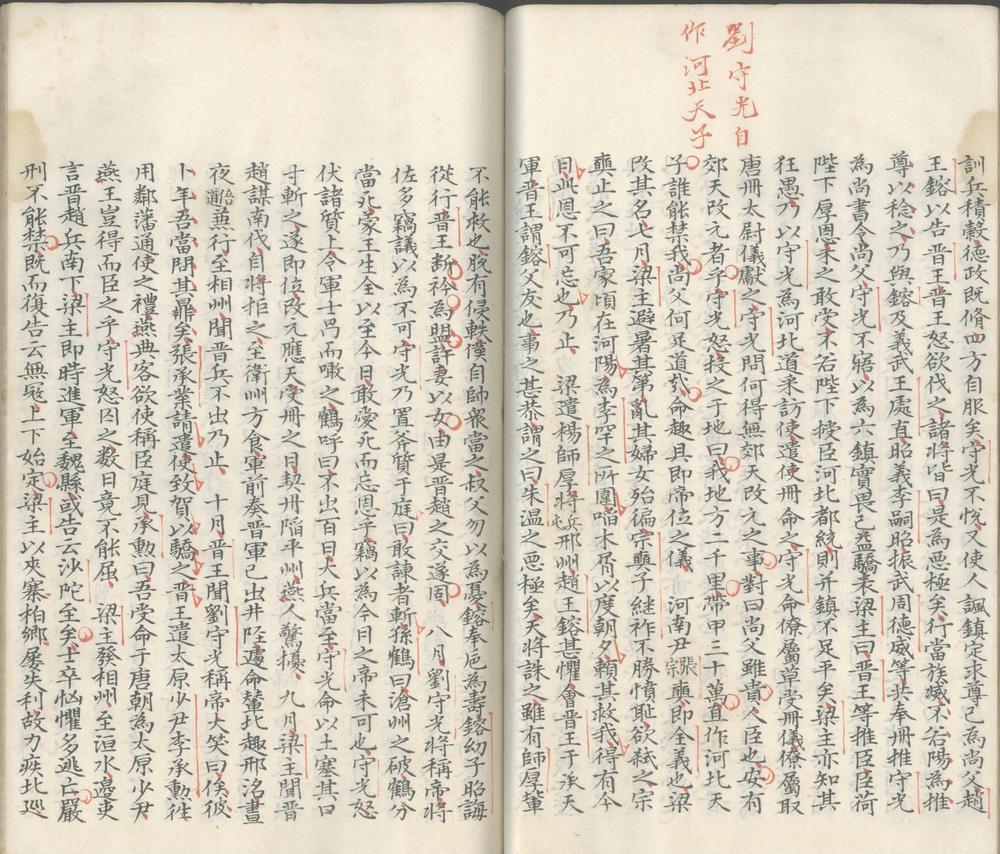 劉守光自
作河北天子
訓兵積穀德政既脩四方自服矣守光不悅又使人諷鎮定求尊己為尚父趙
王鎔以告晉王晉王怒欲伐之諸將皆曰是為惡極矣行當族滅不若陽為推
尊以稔之乃與鎔及義武王處直昭義李嗣昭振武周德威等共奉冊推守光
為尚書令尚父守光不寤以為六鎮實畏己益驕表梁主曰晉王等推臣臣荷
陛下厚恩未之敢受不若陛下授臣河北都統則并鎮不足平矣梁主亦知其
狂愚乃以守光為河北道采訪使遣使冊命之守光命僚屬草受冊儀僚屬取
唐冊太尉儀獻之守光問何得無郊天改元之事對曰尚父雖貴人臣也安有
郊天改元者乎守光怒投之于地曰我地方二千里帶甲三十萬直作河北天
子誰能禁我尚父何足道哉命趣具即帝位之儀　河南尹張宗奭即全義也梁
改其名七月梁主避暑其第亂其婦女殆徧宗奭子継祚不勝憤耻欲弒之宗
奭止之曰吾家頃在河陽為李罕之所圍啗木屑以度朝夕賴其救我得有今
日此恩不可忘也乃止　梁遣楊師厚將兵屯邢州趙王鎔甚懼會晉王于承天
軍晉王謂鎔父友也事之甚恭謂之曰朱溫之惡極矣天將誅之雖有師厚輩
不能救也脫有侵軼僕自帥眾當之叔父勿以為憂鎔奉巵為壽鎔幼子昭誨
從行晉王斷衿為盟許妻以女由是晉趙之交遂固　八月劉守光將稱帝將
佐多竊議以為不可守光乃置斧質于庭曰敢諫者斬孫鶴曰滄州之破鶴分
當死蒙王生全以至今日敢愛死而忘恩乎竊以為今日之帝未可也守光怒
伏諸質上令軍士冎而噉之鶴呼曰不出百日大兵當至守光命以土塞其口
寸斬之遂即位改元應天受冊之日契丹陷平州燕人驚擾　九月梁主聞晉
趙謀南伐自將拒之至衛州方食軍前奏晉軍已出井陘遽命輦北趣邢洺晝
夜倍道兼行至相州聞晉兵不出乃止　十月晉王聞劉守光稱帝大笑曰俟彼
卜年吾當問其鼎矣張承業請遣使致賀以驕之晉王遣太原少尹李承勳徃
用鄰藩通使之禮燕典客欲使稱臣庭見承勳曰吾受命于唐朝為太原少尹
燕王豈得而臣之乎守光怒囚之數日竟不能屈　梁主發相州至洹水邊吏
言晉趙兵南下梁主即時進軍至魏縣或告云沙陀至矣士卒恟懼多逃亡嚴
刑不能禁既而復告云無冦上下始定梁主以夾寨柏鄉屢失利故力疾北巡